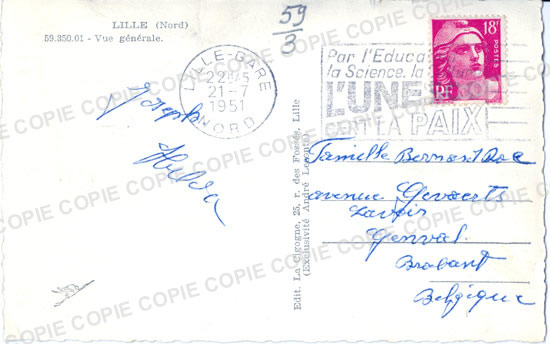 LILLE (Nord)
59.350.01 - Vue générale.
59
3
LILLE-GARE
22H45
21-7
1951
NORD
Par l'Educa
la Science, la
L'UNES
LA PAIX
18F
POSTES
RF
Joseph
Hilda
Edit. La Cigogne, 25, r. des Fossés, Lille
(Exclusivité André Leconte)
Famille Bernard
avenue Gevaerts
Genval
Brabant
Belgique
COPIE COPIE COPIE COPIE COPIE COPIE